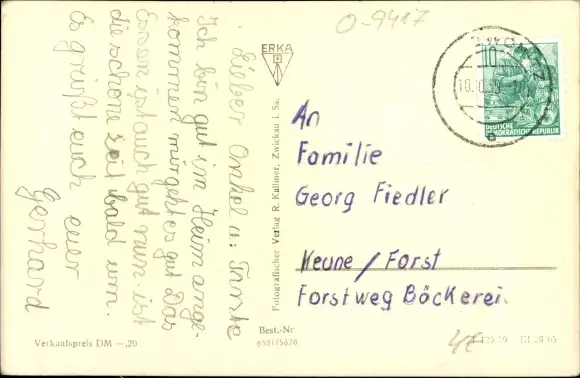 O-9417
Lieber Onkel u. Tannte
Ich bin gut im Heim ange-
kommen mir geht es gut Das
Essen ist auch gut nun ist
die schöne zeit bald um.
Es grüßt euch euer
Gerhard
ERKA
Fotografischer Verlag R. Kallmer, Zwickau i. Sa.
10
DEUTSCHE
DEMOKRATISCHE REPUBLIK
An
Familie
Georg Fiedler
Keune / Forst
Forstweg Bäckerei
Verkaufspreis DM —,20
Best.-Nr
6581/5678